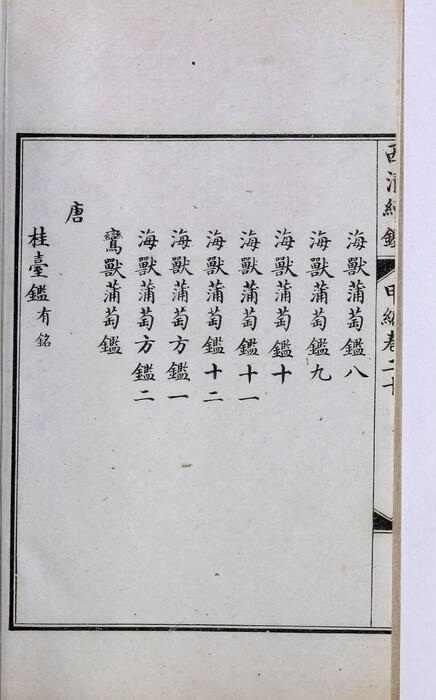 西清續鑑 甲編卷二十
海獸蒲萄鑑八
海獸蒲萄鑑九
海獸蒲萄鑑十
海獸蒲萄鑑十一
海獸蒲萄鑑十二
海獸蒲萄方鑑一
海獸蒲萄方鑑二
鸞獸蒲萄鑑
唐
桂臺鑑有銘